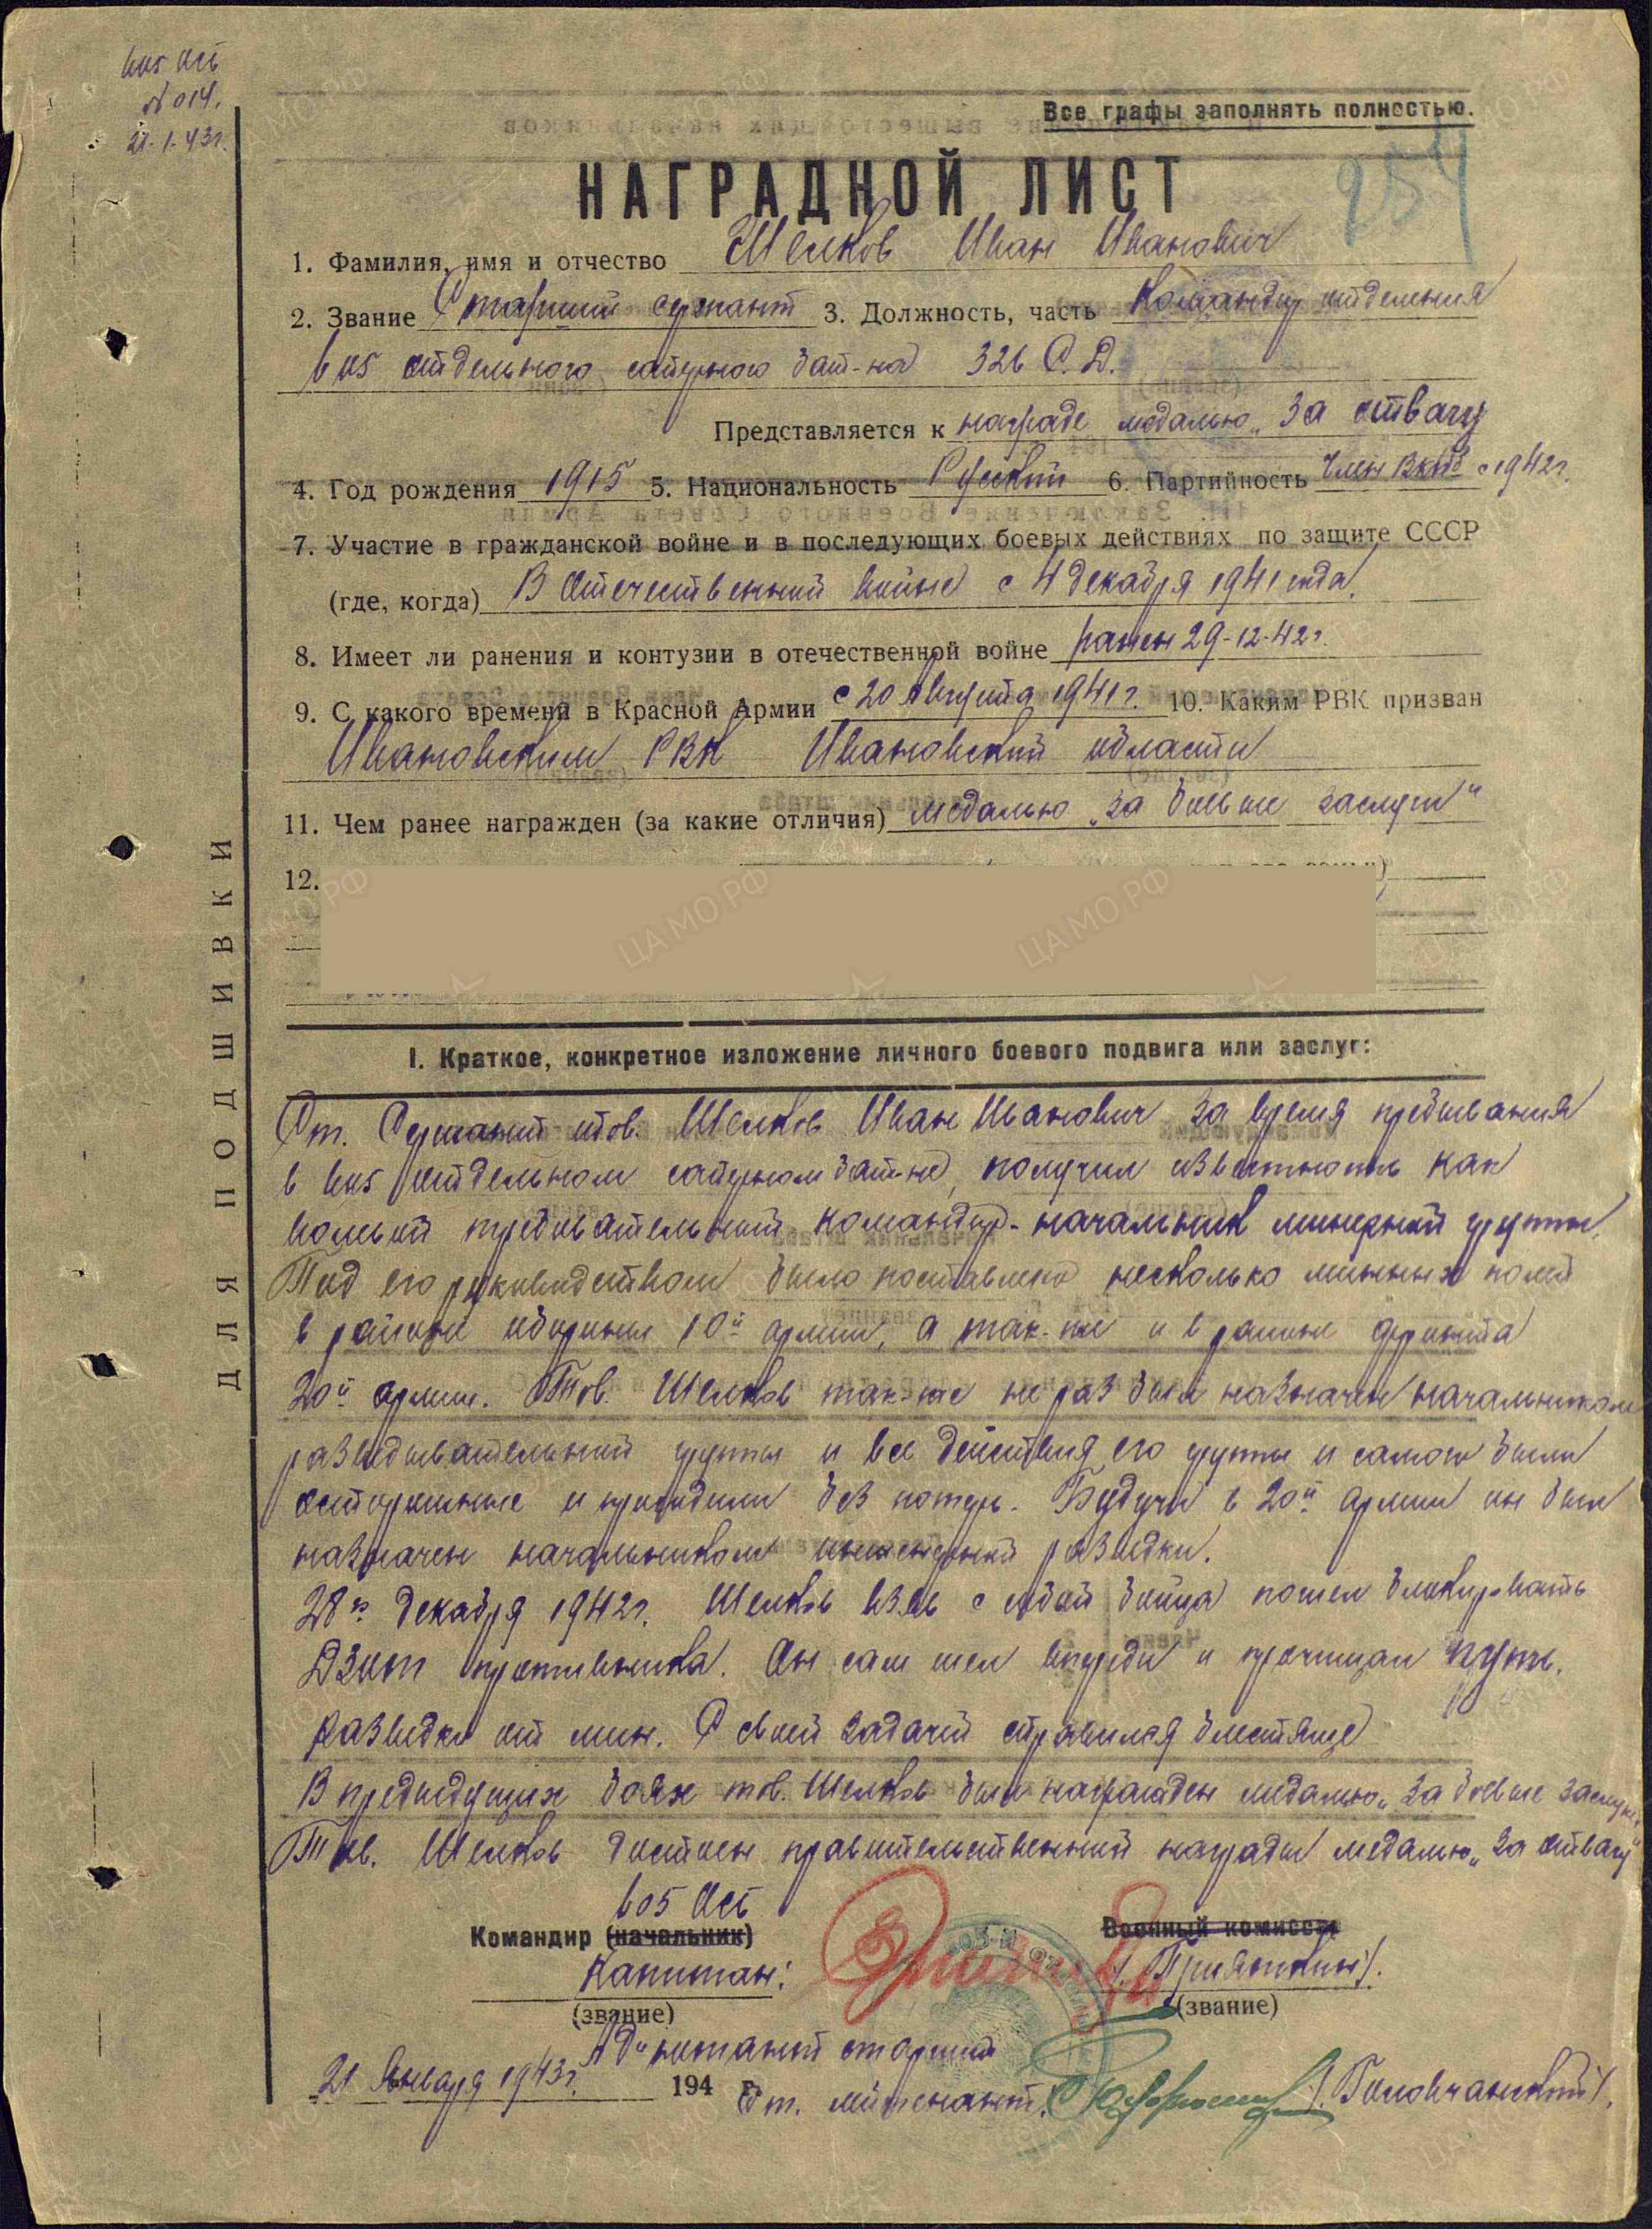 605 ОСБ
№ 014.
21.1.43г.
Все графы заполнять полностью.
254
НАГРАДНОЙ ЛИСТ
1. Фамилия, имя и отчество Шелков Иван Иванович
2. Звание Старший сержант 3. Должность, часть Командир отделения
605 отдельного саперного бат-на 326 С.Д.
Представляется к награде медалью „За отвагу
4. Год рождения 1915 5. Национальность Русский 6. Партийность Член ВКПб с 1942г.
7. Участие в гражданской войне и в последующих боевых действиях по защите СССР
(где, когда) В Отечественной войне с 4 декабря 1941 года.
8. Имеет ли ранения и контузии в отечественной войне ранен 29-12-42г.
9. С какого времени в Красной Армии с 20 Августа 1941г. 10. Каким РВК призван
Ивановским РВК Ивановской области
11. Чем ранее награжден (за какие отличия) медалью „За боевые заслуги"
12.
ДЛЯ ПОДШИВКИ
I. Краткое, конкретное изложение личного боевого подвига или заслуг:
Ст. Сержант тов. Шелков Иван Иванович за время пребывания
в 605 отдельном саперном бат-не, получил известность как
волевой требовательный командир-начальник минерной группы.
Под его руководством было поставлено несколько минных полей
в районе обороны 10й армии, а так-же и в районе фронта
20й армии. Тов. Шелков так-же не раз был назначен начальником
разведывательной группы и все действия его группы и самого были
осторожные и проходили без потерь. Будучи в 20й армии он был
назначен начальником инженерной разведки.
28го декабря 1942г. Шелков взяв с собой бойца пошел блокировать
ДЗОТ противника. Он сам шел впереди и прочищал путь
разведки от мин. С своей задачей справился блестяще
В предыдущих боях тов. Шелков был награжден медалью „За боевые заслуги"
Тов. Шелков достоин правительственной награды медалью „За отвагу"
605 ОСБ
Командир (начальник) Военный комиссар
Капитан: /Прияткин/.
(звание) (звание)
Ад"ютант старший
21 Января 1943г. 194 г.
Ст. лейтенант. /Головчанский/.